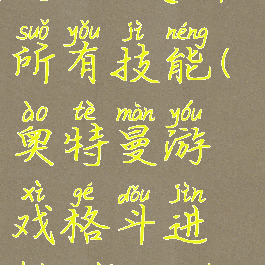 suǒ yǒu jì néng
所有技能(
ào tè màn yóu
奥特曼游
xì gé dòu jìn
戏格斗进